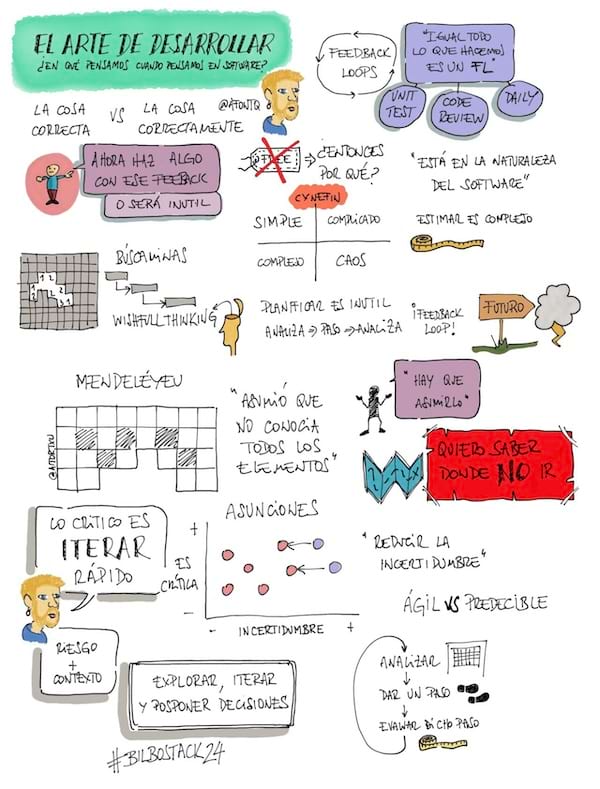 EL ARTE DE DESARROLLAR
¿EN QUÉ PENSAMOS CUANDO PENSAMOS EN SOFTWARE?
LA COSA
CORRECTA
VS
LA COSA
CORRECTAMENTE
FEEDBACK
LOOPS
"IGUAL TODO
LO QUE HACEMOS
ES UN FL"
UNIT
TEST
CODE
REVIEW
DAILY
AHORA HAZ ALGO
CON ESE FEEBACK
O SERÁ INUTIL
FREE
¿ENTONCES
POR QUÉ?
"ESTÁ EN LA NATURALEZA
DEL SOFTWARE"
CYNEFIN
SIMPLE
COMPLICADO
COMPLEJO
CAOS
ESTIMAR ES COMPLEJO
1 2
2
1 1
BÚSCAMINAS
WISHFULLTHINKING
PLANIFICAR ES INUTIL
ANALIZA → PASO → ANALIZA
¡FEEDBACK
LOOP!
FUTURO
MENDELÉYEU
"ASUMIÓ QUE
NO CONOCÍA
TODOS LOS
ELEMENTOS"
"HAY QUE
ASUMIRLO"
QUIERO SABER
DONDE NO IR
LO CRÍTICO ES
ITERAR
RÁPIDO
RIESGO
+
CONTEXTO
ASUNCIONES
+
ES
CRÍTICA
- INCERTIDUMBRE +
"REDUCIR LA
INCERTIDUMBRE"
ÁGIL VS PREDECIBLE
ANALIZAR
DAR UN PASO
EVALUAR DICHO PASO
EXPLORAR, ITERAR
Y POSPONER DECISIONES
#BILBOSTACK24